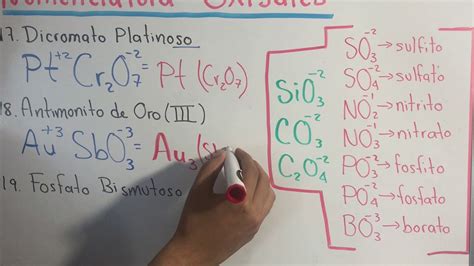 Nomenclatura Oxisales
17. Dicromato Platinoso
Pt⁺² Cr₂O₇⁻² = Pt (Cr₂O₇)
18. Antimonito de Oro (III)
Au⁺³ SbO₃⁻³ = Au₃(S
19. Fosfato Bismutoso
SiO₃⁻²
CO₃⁻²
C₂O₄⁻²
SO₃⁻² → sulfito
SO₄⁻² → sulfato
NO₂⁻¹ → nitrito
NO₃⁻¹ → nitrato
PO₃⁻² → fosfito
PO₄⁻² → fosfato
BO₃⁻³ → borato